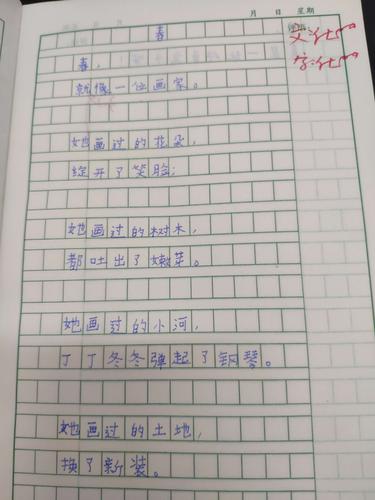 月 日 星期
春
春,
就像一位画家。
她画过的花朵,
绽开了笑脸;
她画过的树木,
都吐出了嫩芽。
她画过的小河,
丁丁冬冬弹起了钢琴。
她画过的土地,
换了新装。